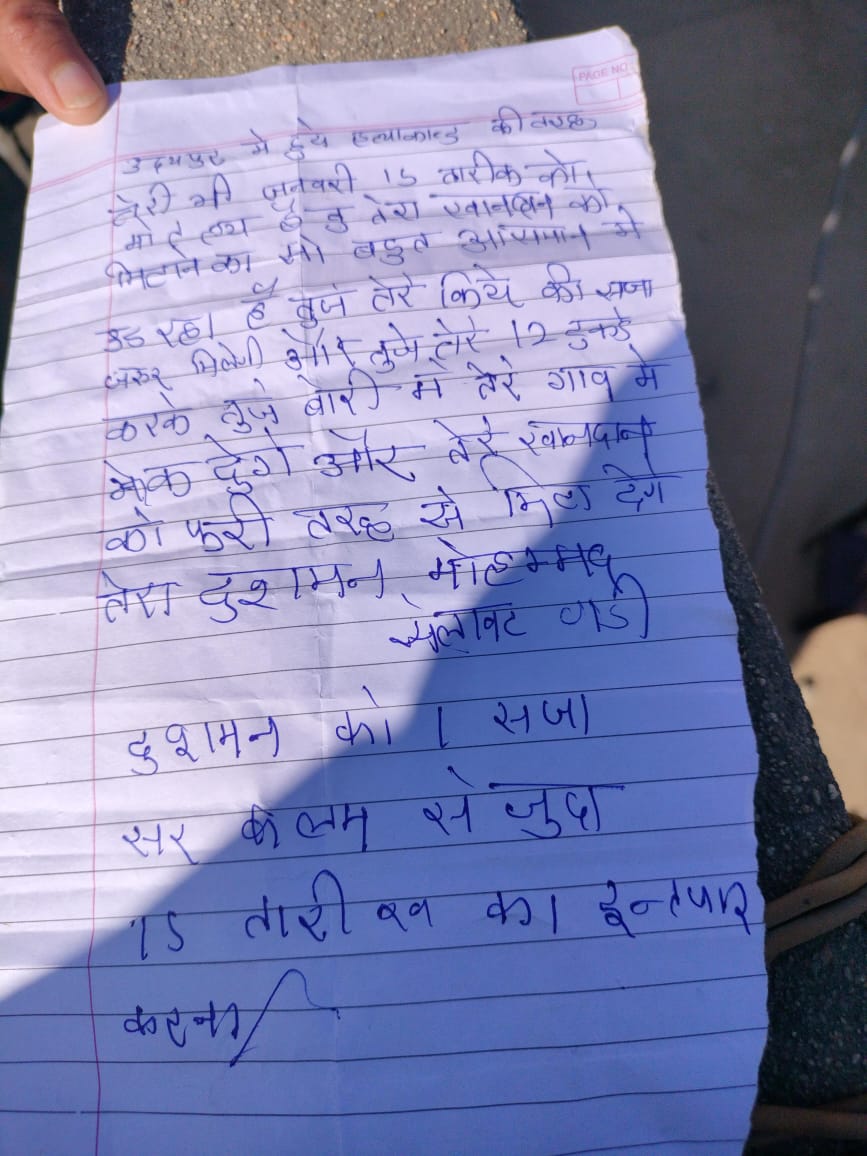 PAGE NO
उदयपुर मे हुये हत्याकान्ड की तरह
तेरी भी जनवरी 15 तारीक को
मोत तय है तु तेरा खानदान को
मिटाने का सो बहुत आसमान मे
उड रहा है तुजे तेरे किये की सजा
जरुर मिलेगी और तुजे तेरे 12 टुकडे
करके तुजे बोरी मे तेरे गाव मे
फेक देगे और तेरे खानदान
को फुरी तरह से मिटा देग
तेरा दुशमन मोहम्मद
सलावट वाडी
दुशमन को । सजा
सर कलम से जुदा
15 तारीख का इन्तजार
करना